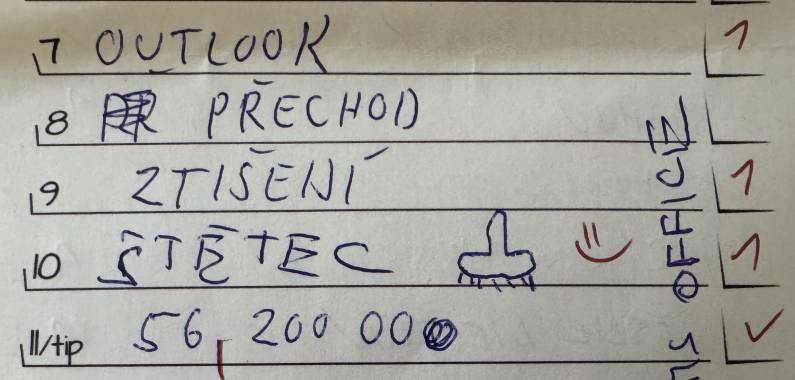 7 OUTLOOK 1
8 PŘECHOD
9 ZTIŠENÍ 1
10 ŠTĚTEC 1
11/tip 56, 200 00
OFFICE